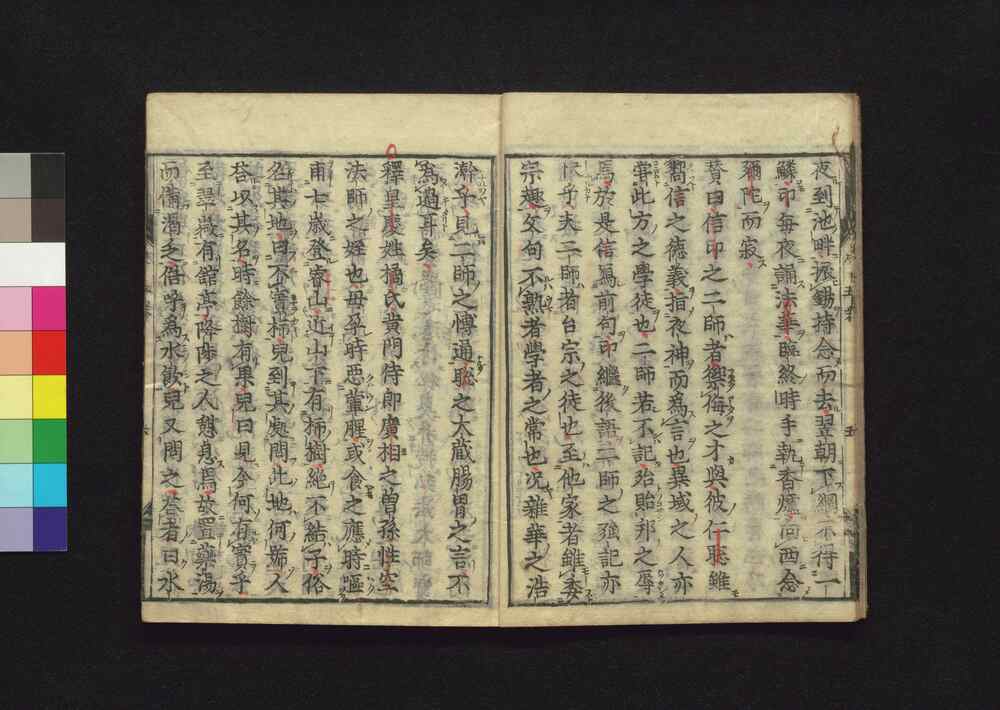 夜到池畔振錫持念而去翌朝下網不得一
鱗印每夜誦法華臨終時手執香爐向西念
彌陀而寂
賛曰信印之二師者禦侮之才與彼仁聰雖
嚮信之德義指夜神而為言也異域之人亦
嘗此方之學徒也二師若不記殆貽邦之辱
焉於是信為前句印繼後語二師之強記亦
夫二師者台宗之徒也至他家者雖委
宗趣文句不熟者學者之常也况雜華之浩
瀚乎見二師之博通聡之大藏腸胃之言不
為過哥矣
釋皇慶姓橘氏黄門侍郎廣相之曽孫性空
法師之姪也母孕時惡葷腥或食之應時嘔
甫七歳登睿山近山下有柿樹絕不結子俗
名其地曰不實柿兒到其處問此地何號人
荅以其名時餘樹有果兒曰見今何有實乎
至麓有舘亭降陟之人憇息焉故置藥湯
而備渇乏俗呼為水歓兒又問之荅者曰水